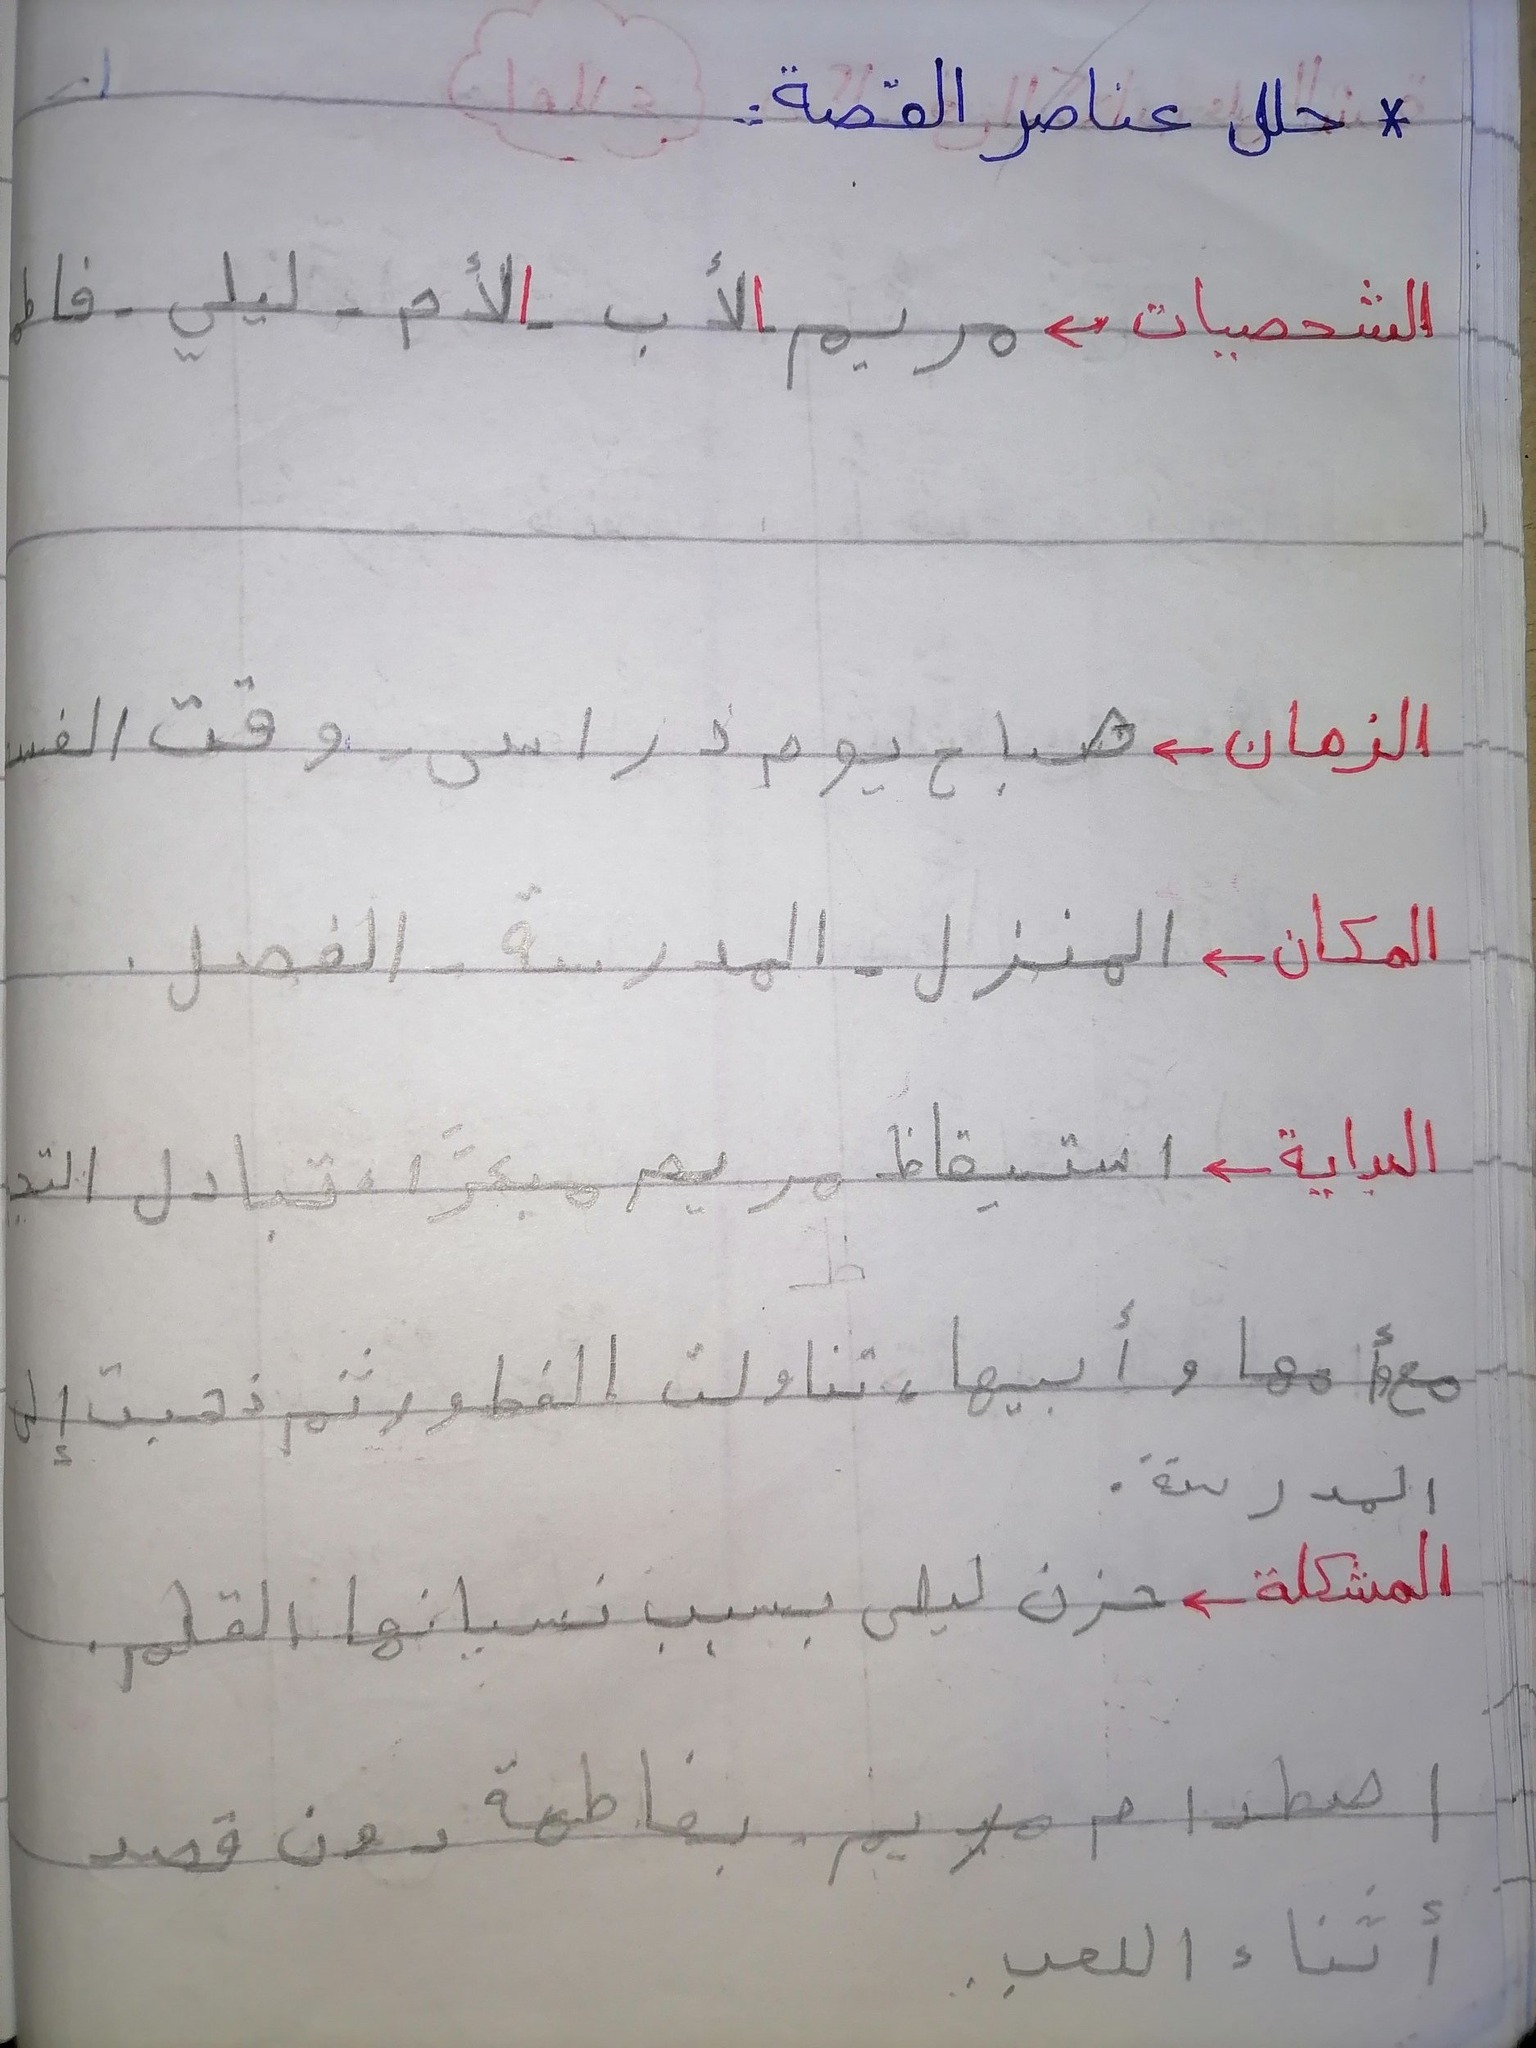 * حلل عناصر القصة :-
الشخصيات ← مريم - الأب - الأم - ليلي -
الزمان ← صباح يوم دراسي - وقت
المكان ← المنزل - المدرسة - الفصل .
البداية ← استيقاظ مريم مبكرًا ، تبادل
مع أمها و أبيها ، تناولت الفطور ثم ذهبت إلى
المدرسة .
المشكلة ← حزن ليلى بسبب نسيانها القلم .
اصطدام مريم بفاطمة دون قصد
أثناء اللعب .